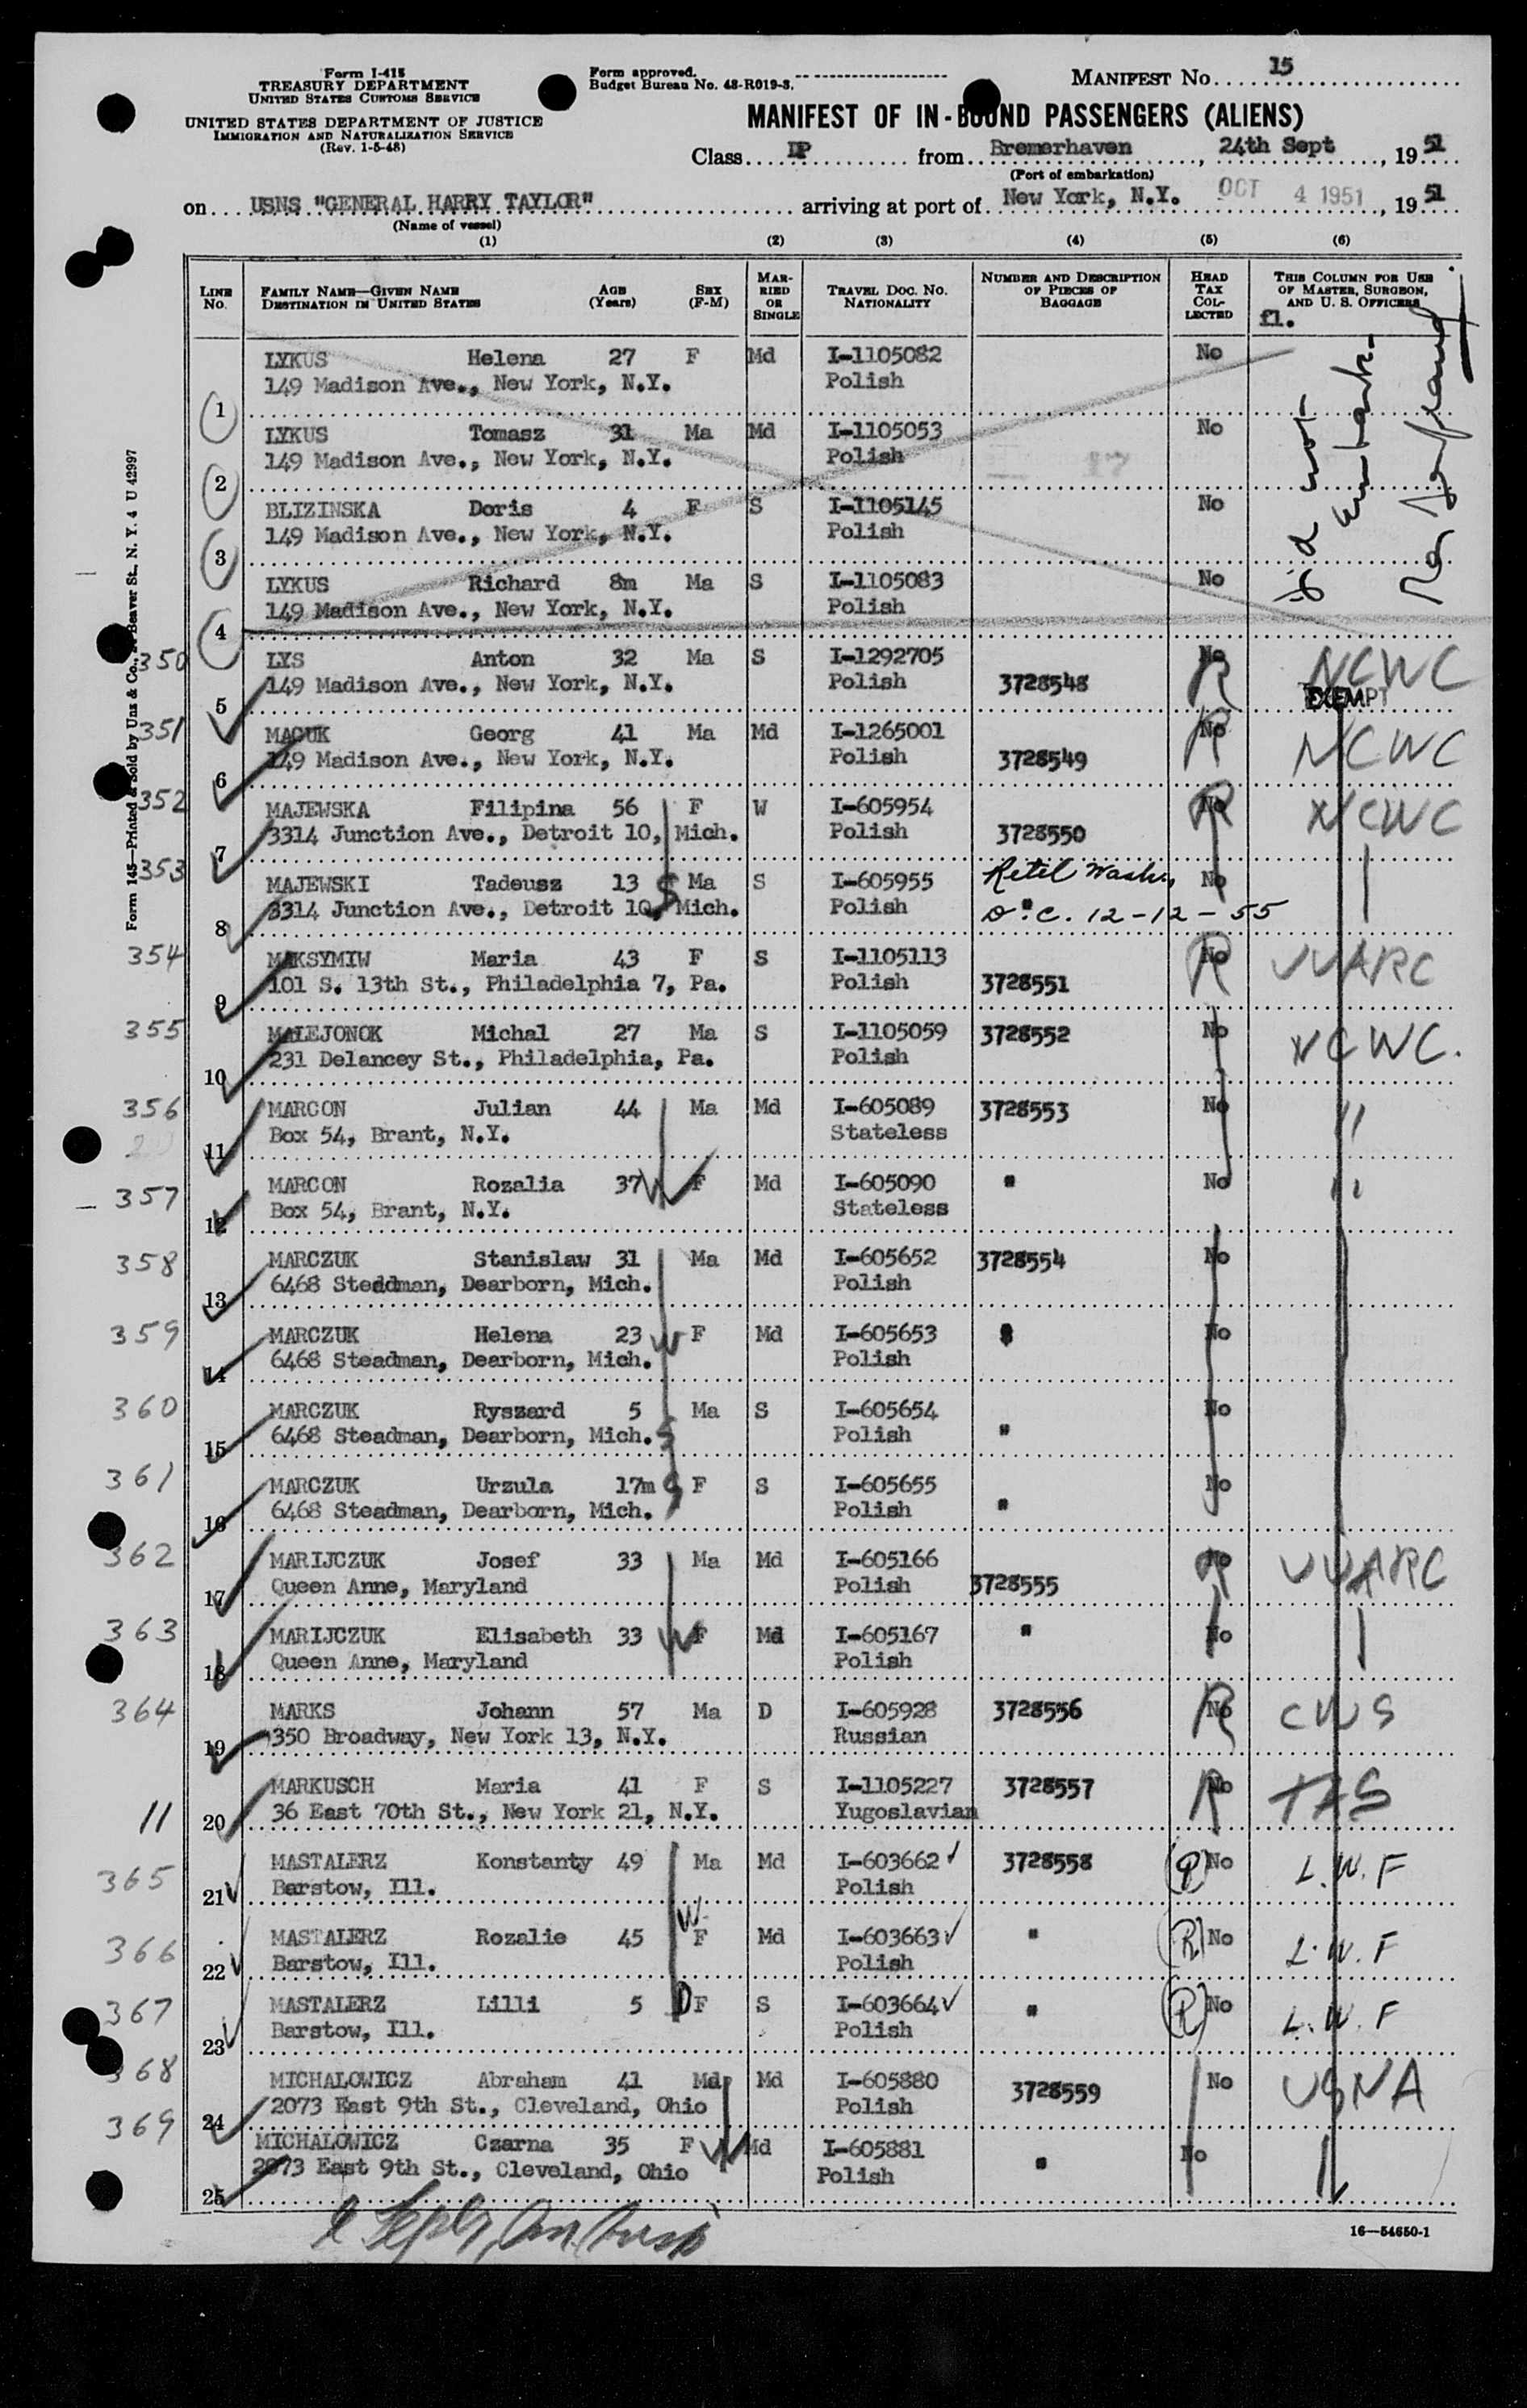 Form I-415
TREASURY DEPARTMENT
UNITED STATES CUSTOMS SERVICE
UNITED STATES DEPARTMENT OF JUSTICE
IMMIGRATION AND NATURALIZATION SERVICE
(Rev. 1-5-48)
Form approved.
Budget Bureau No. 43-R019-3.
MANIFEST No. 15
MANIFEST OF IN-BOUND PASSENGERS (ALIENS)
Class DP from Bremerhaven, 24th Sept, 1951
(Port of embarkation)
on USNS "GENERAL HARRY TAYLOR" arriving at port of New York, N.Y. OCT 4 1951, 1951
(Name of vessel)
(1) (2) (3) (4) (5) (6)
LINE No. FAMILY NAME—GIVEN NAME DESTINATION IN UNITED STATES AGE (Years) SEX (F-M) MARRIED OR SINGLE TRAVEL DOC. NO. NATIONALITY NUMBER AND DESCRIPTION OF PIECES OF BAGGAGE HEAD TAX COLLECTED THIS COLUMN FOR USE OF MASTER, SURGEON, AND U. S. OFFICERS
fl.
LYKUS Helena 27 F Md I-1105082 No
149 Madison Ave., New York, N.Y. Polish
1
LYKUS Tomasz 31 Ma Md I-1105053 No
149 Madison Ave., New York, N.Y. Polish 17
2
BLIZINSKA Doris 4 F S I-1105145 No
149 Madison Ave., New York, N.Y. Polish
3
LYKUS Richard 8m Ma S I-1105083 No
149 Madison Ave., New York, N.Y. Polish
4
did not embark
350 LYS Anton 32 Ma S I-1292705 No R NCWC
149 Madison Ave., New York, N.Y. Polish 3728548 EXEMPT
5
351 MACUK Georg 41 Ma Md I-1265001 No R NCWC
149 Madison Ave., New York, N.Y. Polish 3728549
6
352 MAJEWSKA Filipina 56 F W I-605954 No R NCWC
3314 Junction Ave., Detroit 10, Mich. Polish 3728550
7
353 MAJEWSKI Tadeusz 13 S Ma S I-605955 Retel Wash. No
3314 Junction Ave., Detroit 10, Mich. Polish " D.C. 12-12-55
8
354 MAKSYMIW Maria 43 F S I-1105113 No R UUARC
101 S. 13th St., Philadelphia 7, Pa. Polish 3728551
9
355 MALEJONOK Michal 27 Ma S I-1105059 3728552 No NCWC.
231 Delancey St., Philadelphia, Pa. Polish
10
356 MARCON Julian 44 Ma Md I-605089 3728553 No "
Box 54, Brant, N.Y. Stateless
11
357 MARCON Rozalia 37 W F Md I-605090 " No "
Box 54, Brant, N.Y. Stateless
12
358 MARCZUK Stanislaw 31 Ma Md I-605652 3728554 No
6468 Steddman, Dearborn, Mich. Polish
13
359 MARCZUK Helena 23 W F Md I-605653 " No
6468 Steadman, Dearborn, Mich. Polish
14
360 MARCZUK Ryszard 5 Ma S I-605654 No
6468 Steadman, Dearborn, Mich. S Polish "
15
361 MARCZUK Urzula 17m F S I-605655 No
6468 Steadman, Dearborn, Mich. Polish "
16
362 MARIJCZUK Josef 33 Ma Md I-605166 No R UUARC
Queen Anne, Maryland Polish 3728555
17
363 MARIJCZUK Elisabeth 33 W F Md I-605167 " No
Queen Anne, Maryland Polish
18
364 MARKS Johann 57 Ma D I-605928 3728556 No R CWS
350 Broadway, New York 13, N.Y. Russian
19
MARKUSCH Maria 41 F S I-1105227 3728557 No R TAS
11 36 East 70th St., New York 21, N.Y. Yugoslavian
20
365 MASTALERZ Konstanty 49 Ma Md I-603662 3728558 (R) No L.W.F
Barstow, Ill. Polish
21
366 MASTALERZ Rozalie 45 W F Md I-603663 " (R) No L.W.F
Barstow, Ill. Polish
22
367 MASTALERZ Lilli 5 D F S I-603664 " (R) No L.W.F
Barstow, Ill. Polish
23
368 MICHALOWICZ Abraham 41 Md Md I-605880 3728559 No USNA
2073 East 9th St., Cleveland, Ohio Polish
24
369 MICHALOWICZ Czarna 35 F W Md I-605881 " No
2073 East 9th St., Cleveland, Ohio Polish
25
16—54650-1